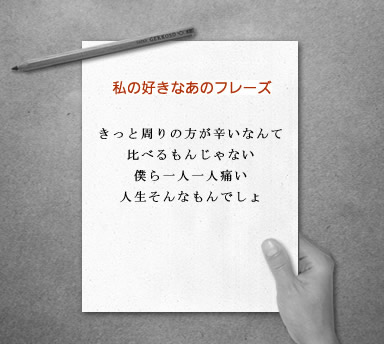 私の好きなあのフレーズ
きっと周りの方が辛いなんて
比べるもんじゃない
僕ら一人一人痛い
人生そんなもんでしょ